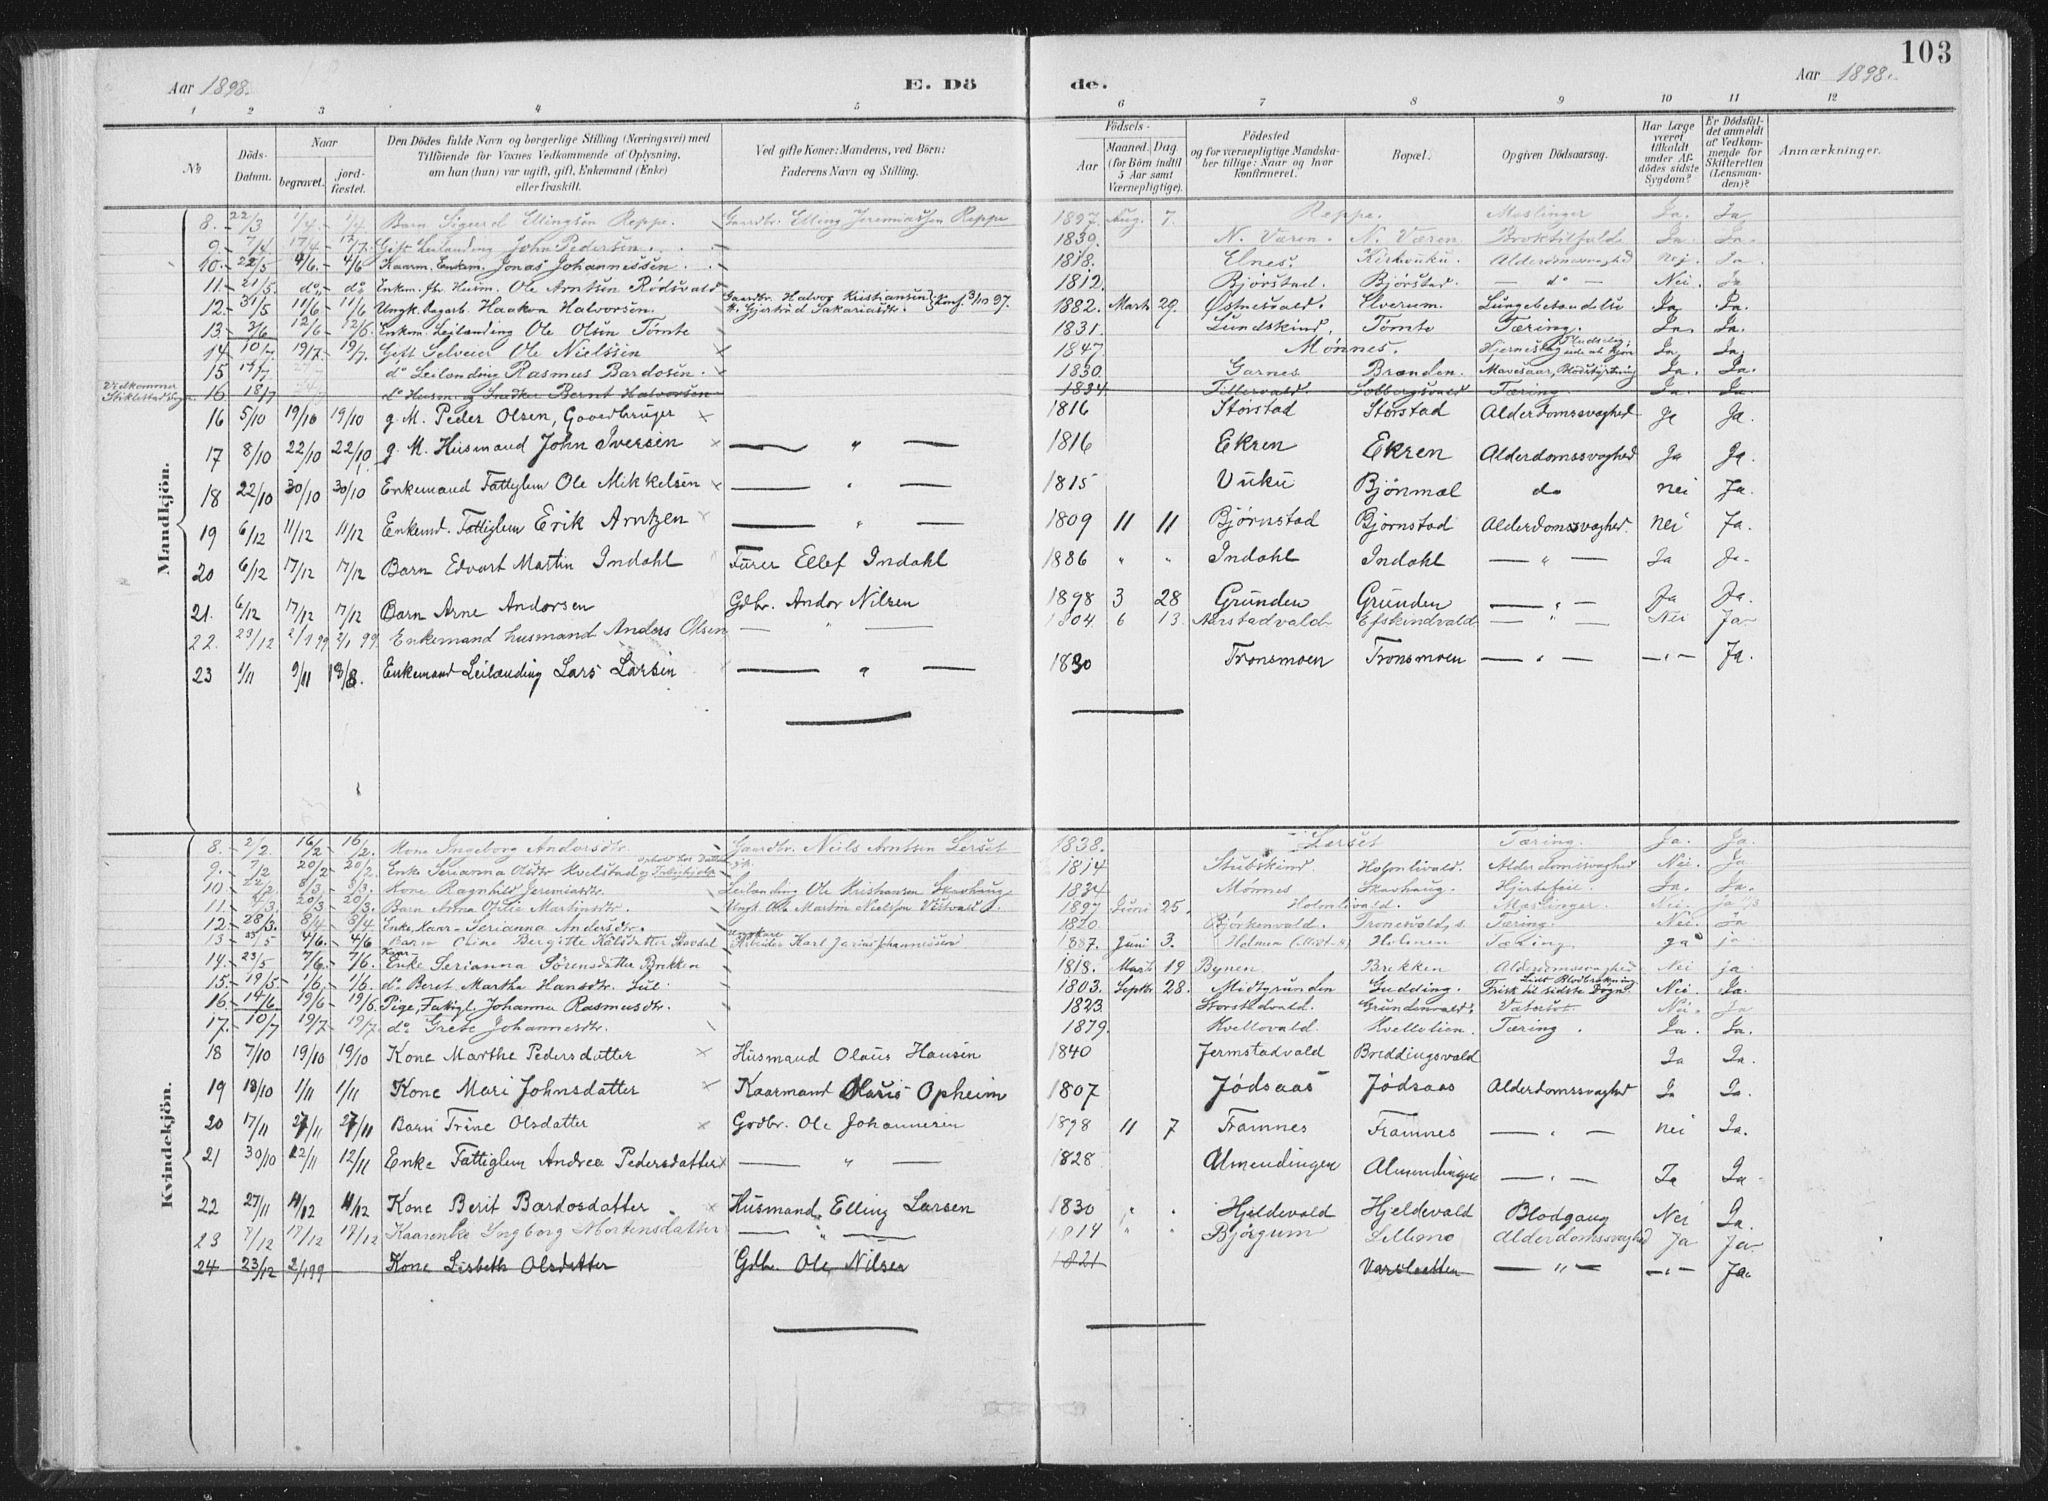 103
Aar 1898. E. Dö de. Aar 1898.
1 2 3 4 5 6 7 8 9 10 11 12
No
Döds-Datum.
Naar begravet. jord-fæstet.
Den Dödes fulde Navn og borgerlige Stilling (Næringsvei) med Tilföiende for Voxnes Vedkommende af Oplysning, om han (hun) var ugift, gift, Enkemand (Enke) eller fraskilt.
Ved gifte Koner: Mandens, ved Börn: Faderens Navn og Stilling.
Födsels- Aar Maaned. Dag (for Börn indtil 5 Aar samt Værnepligtige).
Födested og for værnepligtige Mandskaber tillige: Naar og hvor konfirmeret.
Bopæl.
Opgiven Dödsaarsag.
Har Læge været tilkaldt under Afdödes sidste Sygdom?
Er Dödsfaldet anmeldt af Vedkommende for Skifteretten (Lensmanden)?
Anmærkninger.
Mandkjön.
8. 22/3 1/4 1/4 Barn Sigurd Ellingsen Reppe. Gaardbr. Elling Jeremiassen Reppe 1897 Aug. 7. Reppe. Meslinger Ja. Ja
9. 7/4 17/4 17/7 Gift Leilending John Pedersen. 1839. N. Væren. N. Væren Broktilfælde Ja. Ja.
10. 22/5 4/6. 4/6 Kaarm. Enkem. Jonas Johannessen. 1818. Elnes. Kirkevuku. Alderdomssvaghed Nej. Ja.
11. 21/5 do do Enkem. fhv. Husm. Ole Arntsen Rødsvald 1812. Bjørstad. Bjørstad. do Nei. Ja
12. 31/5 11/6 11/6 Ungk. Dagarb. Haakon Halvorsen. Gaardbr. Halvor Kristiansen & Gjertrud Sakariasdtr. Konf. 3/10 97. 1882. Marts 29. Østnesvald. Elverum. Lungebetændelse Ja Ja.
13. 3/6 12/6 12/6. Enkem. Leilending Ole Olsen Tømte 1831. Lundskind. Tømte Tæring. Ja. Ja.
14. 10/7 19/7 19/7. Gift Selveier Ole Nielssen 1847. Mønnes. Hjerneslag Ja Ja.
15 17/7 do Leilending Rasmus Bardosen. 1830. Garnes Brænden. Mavesaar, Blodstyrtning Ja. Ja.
Vedkommer Stiklestad Sogn. 16 18/7 do Husm. og Snedker Bernt Halvorsen 1834 Tillersvald. Solbergsvald Tæring. Ja. Ja
16 5/10 19/10 19/10 g. M. Peder Olsen, Gaardbruger 1816 Storstad Storstad Alderdomssvaghed Ja Ja.
17 8/10 22/10 22/10 g. M. Husmand John Iversen — " — 1816 Ekren Ekren Alderdomssvaghed Ja Ja.
18 22/10 30/10 30/10 Enkemand Fattiglem Ole Mikkelsen — " — 1815 Vuku Bjönmæl do nei Ja.
19 6/12 11/12 11/12 Enkemd. Fattiglem Erik Arntzen — " — 1809 11 11 Björnstad Björnstad Alderdomssvaghed nei Ja.
20 6/12 17/12 17/12 Barn Edvart Martin Indahl Furer Ellef Indahl 1886 " " Indahl Indahl — " — Ja Ja.
21. 6/12 17/12 17/12 Barn Arne Andorsen Gdbr. Andor Nilsen 1898 3 28 Grunden Grunden — " — Ja Ja.
22. 23/12 2/1 99 2/1 99. Enkemand husmand Anders Olsen — " — 1804 6 13. Aarstadvald Efskindvald — " — Nei Ja
23 1/11 9/11 Enkemand Leilænding Lars Larsen — " — 1830 Tronsmoen Tronsmoen — " — — " — Ja.
Kvindekjön.
8. 2/2. 16/2 16/2. Kone Ingeborg Andersdtr. Gaardbr. Niels Arntsen Lerset 1838. Lerset Tæring. Ja. Ja.
9. 7/2 20/2 20/2 Enke Serianna Olsdtr Kvelstad 1814 Stubskind Holmlivald. Alderdomssvaghed Nei. Ja
10. 22/2. 8/3. 8/3. Kone Ragnhild Jeremiasdtr. Leilending Ole Kristiansen Skavhaug 1834 Mønnes Skavhaug. Hjertefeil. Ja. Ja.
11. 4/3. 20/3 20/3. Barn Anna Otilie Martinsdtr. Ungk. Ole Martin Nielsen Vestvald 1897 Juni 25. Holmlivald. Mæslinger. Nei. Ja
12. 28/3. 8/4 8/4. Enke, Kaar- Serianna Andersdtr. 1820. Bjørkenvald. Tronesvald, s. Tæring. Nei. Ja
13. 25/5 4/6. 4/6 Barn Oline Bergitte Karlsdatter Skavdal Arbeider Karl Jarius Johannessen 1887. Juni 3. Holmen Holmen Tæring ja ja
14. 23/5 7/6. 7/6. Kaar- Enke Serianna Sørensdatter Brekken 1818. Marts 19 Bynen Brekken Alderdomssvaghed Nei ja
15. 19/5 1/6. 1/6. do Beret Martha Hansdtr. Sul. 1803. Septb. 28. Midtgrunden Gudding. Frisk til sidste Døgn Nei. Ja.
16. 14/6. 19/6 19/6. Pige, Fattigl. Johanna Rasmusdtr. 1823. Storstadvald. Grundenvald. Vatersot. Nei. Ja
17. 10/7 19/7 19/7. do Grete Johannesdtr. 1879. Kvellovald. Kvellolien. Tæring. Ja. Ja.
18 7/10 19/10 19/10 Kone Marthe Pedersdatter Husmand Olaus Hansen 1840 Jermstadvald Breddingsvald Ja Ja.
19 18/10 1/11 1/11 Kone Mari Johnsdatter Kaarmand Olaus Opheim 1807 Jödsaas Jödsaas Alderdomssvaghed Ja Ja.
20 17/11 27/11 27/11 Barn Trine Olsdatter Gdbr. Ole Johannesen 1898 11 7 Framnes Framnes — " — nei Ja.
21 30/10 12/11 12/11 Enke Fattiglem Andrea Pedersdatter — " — 1828 Almendingen Almendingen — " — Ja Ja
22 27/11 4/12 4/12 Kone Berit Bardosdatter Husmand Elling Larsen 1830 " " Hjeldevald Hjeldevald Blodgang Nei Ja.
23 8/12 17/12 17/12 Kaarenke Ingborg Mortensdatter — " — 1814 " " Bjørgum Lillemo Alderdomssvaghed Ja Ja
24 23/12 2/1 99 Kone Lisbeth Olsdatter Gdbr. Ole Nilsen 1821 Varslaatten — " — — " — Ja.